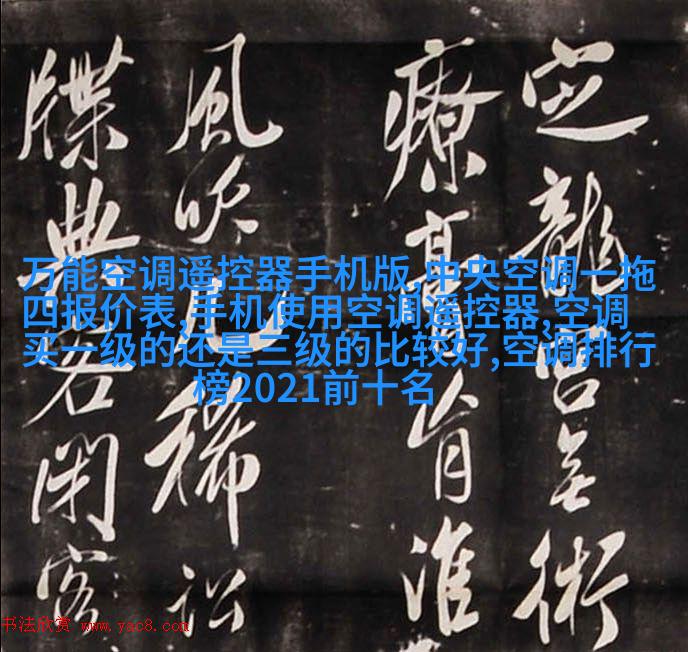 龍宮無術
療膏肓淮
風吹稀訟
牒典閑客
万能空调遥控器手机版,中央空调一拖
四报价表,手机使用空调遥控器,空调
买一级的还是三级的比较好,空调排行
榜2021前十名
书法欣赏 www.yac8.com